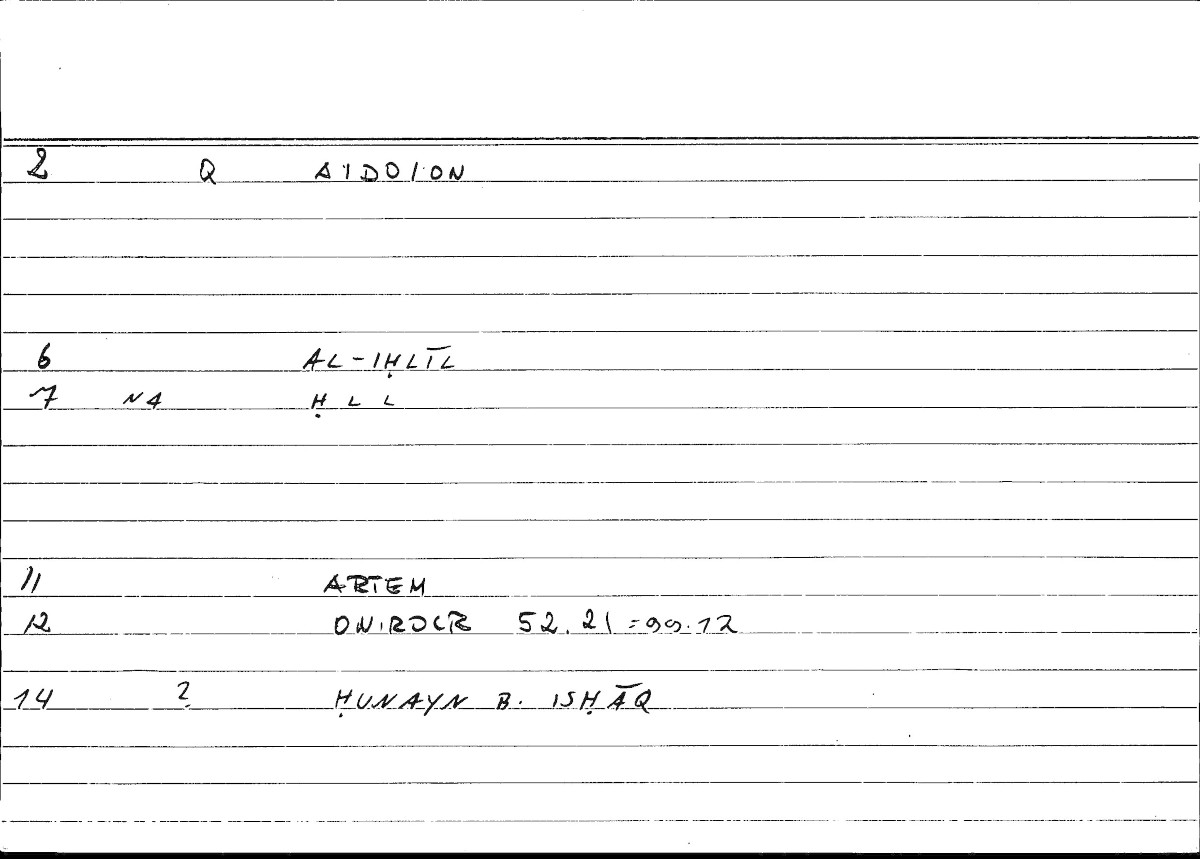 2 Q AIDOION
6 AL-IḤLĪL
7 N4 ḤLL
11 ARTEM
12 ONIROCR 52.21 = 99.12
14 ? ḤUNAYN B. ISḤĀQ